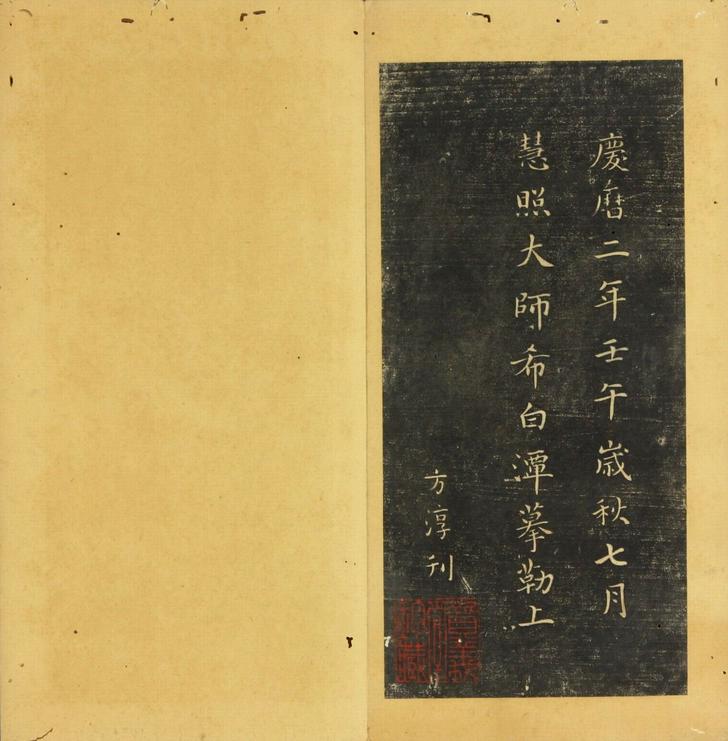 慶曆二年壬午歲秋七月
慧照大師希白潭摹勒上
方淳刊